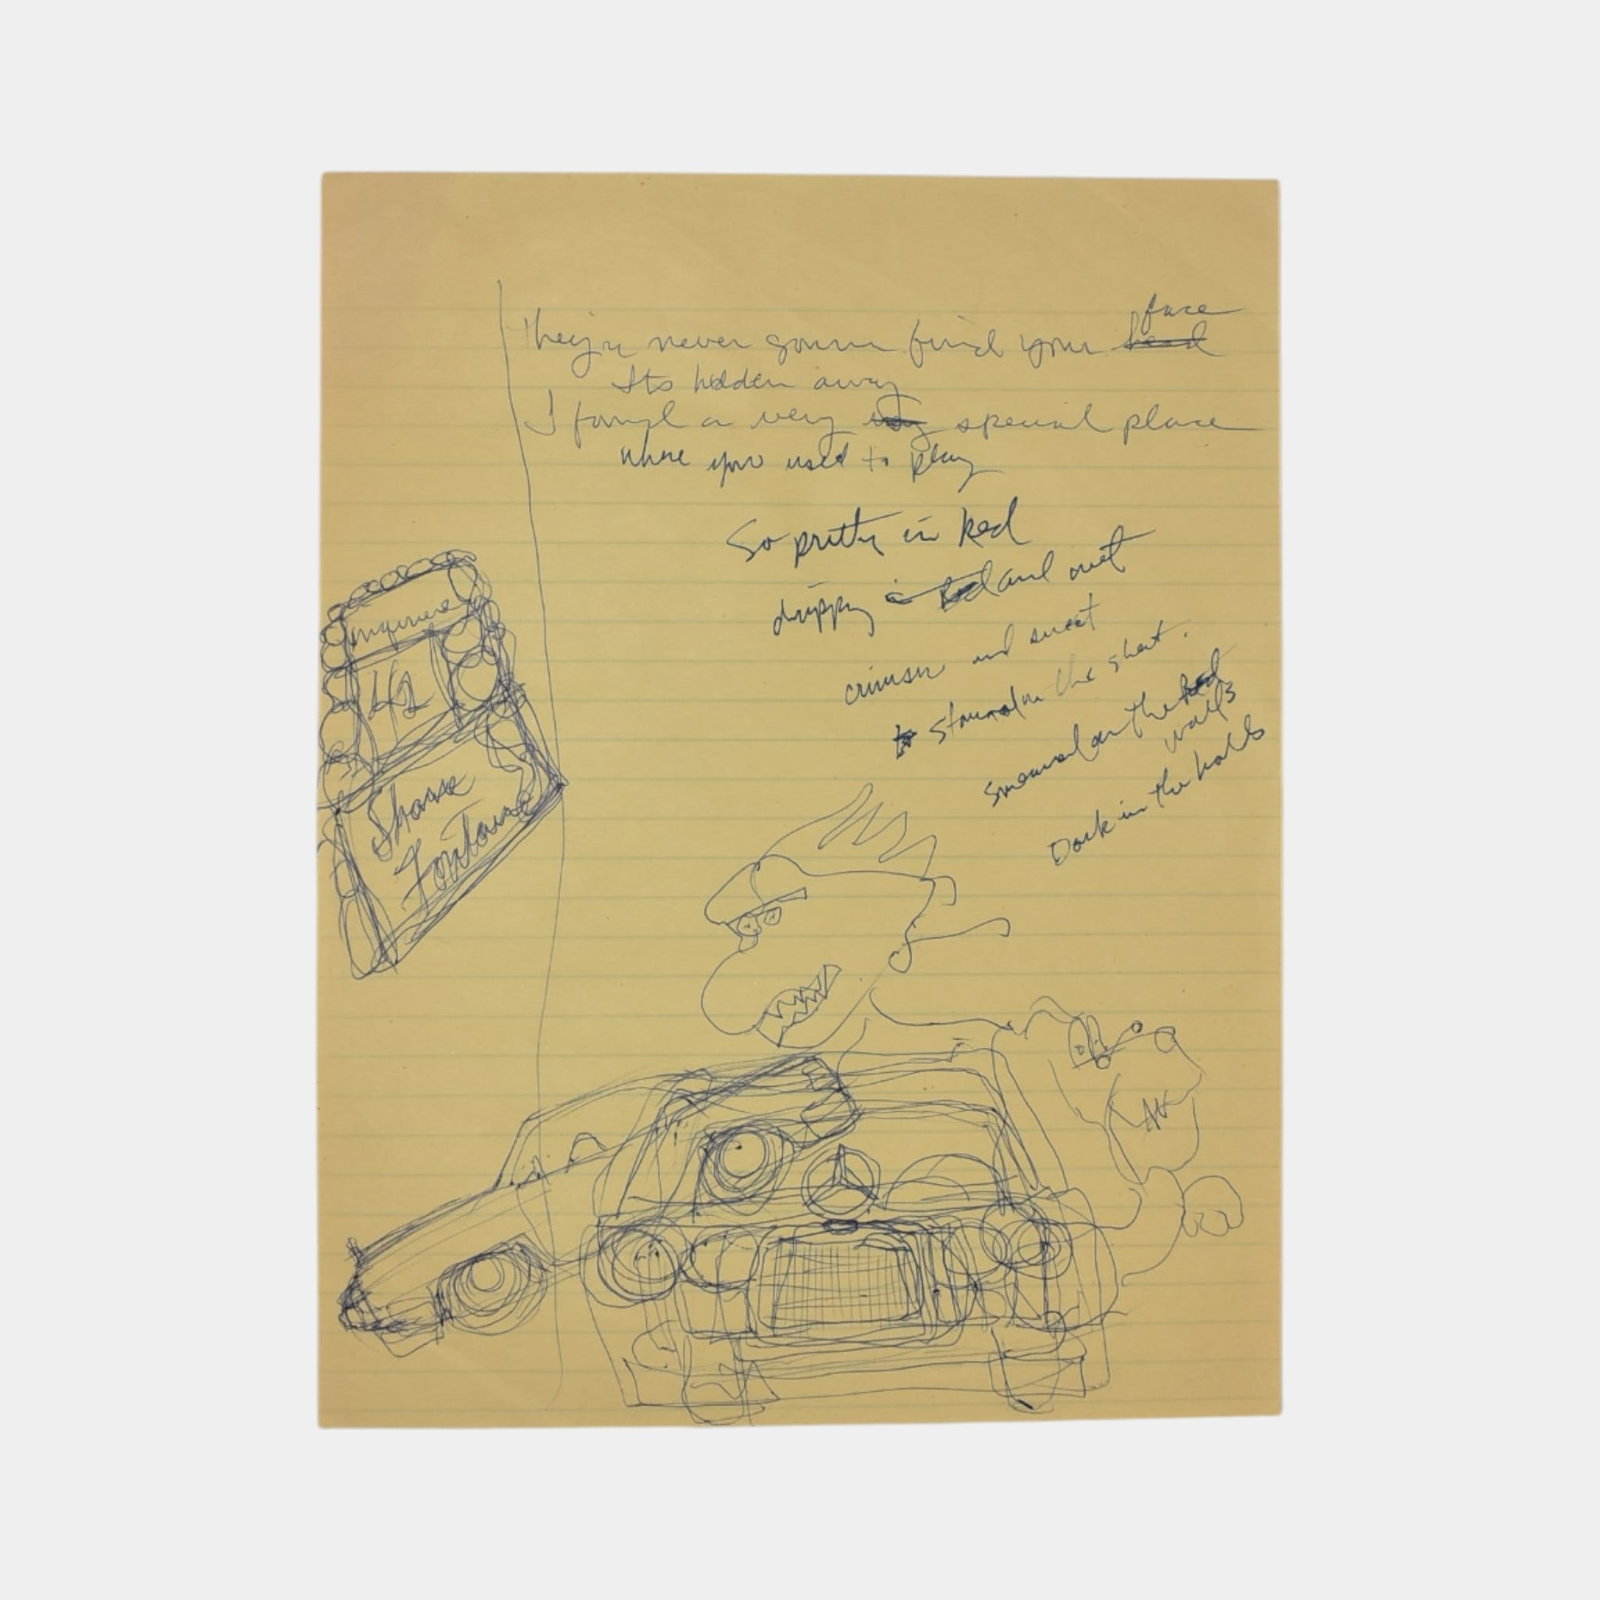 They're never gonna find your head face
Its hidden away
I found a very special place
where you used to play
So pretty in Red
drippy and wet
crimson and sweet
stained on the sheet.
smeared on the red
walls
Dark in the halls
42
Fontaine